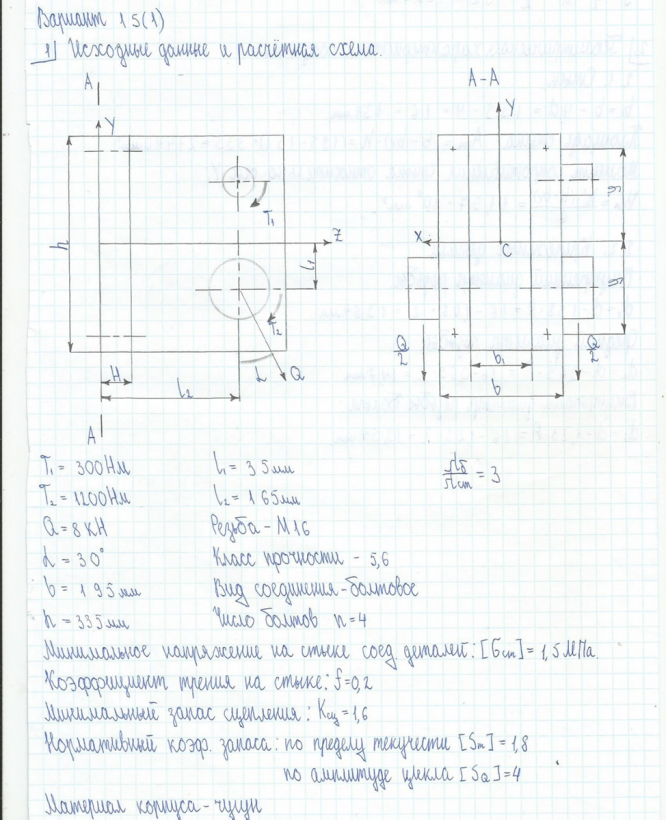 Вариант 15(1)
1) Исходные данные и расчётная схема.
A
A-A
Y
Y
T₁
h
Z
X
C
l₁
T₂
H
L
Q
l₂
b₁
b
Q/2
Q/2
A
T₁ = 300 Нм
l₁ = 35 мм
λб/λст = 3
T₂ = 1200 Нм
l₂ = 165 мм
Q = 8 кН
Резьба - М16
L = 30°
Класс прочности - 5,6
b = 195 мм
Вид соединения - болтовое
h = 335 мм
Число болтов n = 4
Минимальное напряжение на стыке соед. деталей: [σст] = 1,5 МПа.
Коэффициент трения на стыке: f = 0,2
Минимальный запас сцепления: Kсц = 1,6
Нормативный коэф. запаса: по пределу текучести [Sт] = 1,8
по амплитуде цикла [Sa] = 4
Материал корпуса - чугун